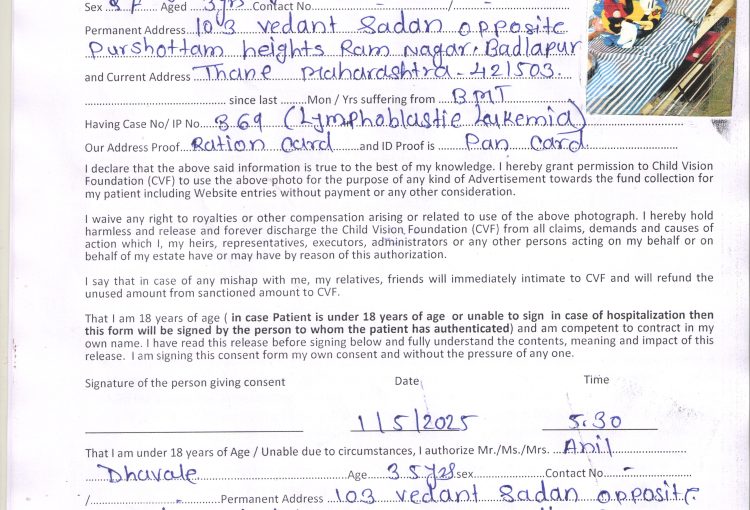 Sex ... Aged ... 3 yrs Contact No ... /
Permanent Address... 103 vedant Sadan opposite
Purshottam heights Ram Nagar, Badlapur
and Current Address Thane Maharashtra - 421503.
... since last ... Mon / Yrs suffering from ... BMT
Having Case No/ IP No. 869 (Lymphoblastic Leukemia)
Our Address Proof... Ration card ... and ID Proof is ... Pan Card.
I declare that the above said information is true to the best of my knowledge. I hereby grant permission to Child Vision
Foundation (CVF) to use the above photo for the purpose of any kind of Advertisement towards the fund collection for
my patient including Website entries without payment or any other consideration.
I waive any right to royalties or other compensation arising or related to use of the above photograph. I hereby hold
harmless and release and forever discharge the Child Vision Foundation (CVF) from all claims, demands and causes of
action which I, my heirs, representatives, executors, administrators or any other persons acting on my behalf or on
behalf of my estate have or may have by reason of this authorization.
I say that in case of any mishap with me, my relatives, friends will immediately intimate to CVF and will refund the
unused amount from sanctioned amount to CVF.
That I am 18 years of age ( in case Patient is under 18 years of age or unable to sign in case of hospitalization then
this form will be signed by the person to whom the patient has authenticated) and am competent to contract in my
own name. I have read this release before signing below and fully understand the contents, meaning and impact of this
release. I am signing this consent form my own consent and without the pressure of any one.
Signature of the person giving consent Date Time
1/5/2025 5.30
That I am under 18 years of Age / Unable due to circumstances, I authorize Mr./Ms./Mrs. ... Anil
Dhavale ... Age 35 yrs sex ... Contact No. -
/ ... - ... Permanent Address ... 103 vedant Sadan opposite